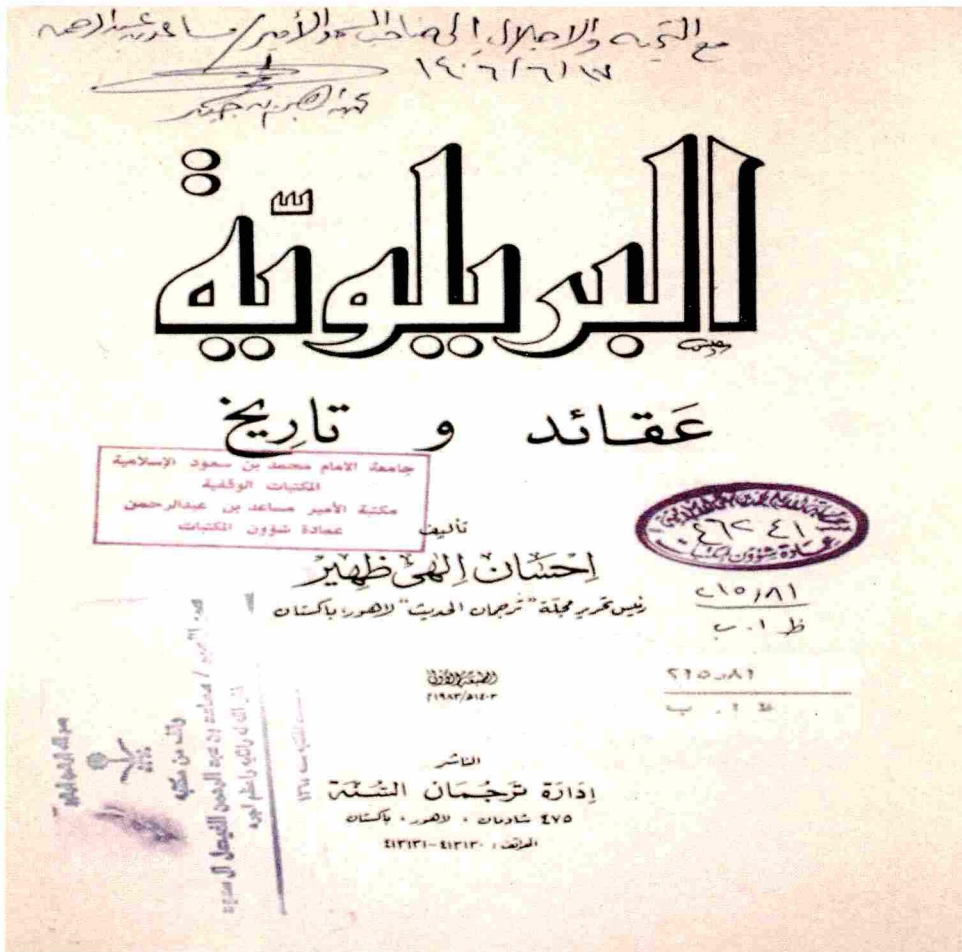 مع التحية والاجلال إلى صاحب السمو الأمير/ مساعد بن عبد الرحمن
١٧/٦/١٤٠٦
البريلويّة
عَقائد و تاريخ
جامعة الامام محمد بن سعود الإسلامية
المكتبات الوقفية
مكتبة الأمير مساعد بن عبدالرحمن
عمادة شؤون المكتبات
تأليف
إحسَان إلهى ظهير
رئيس تحرير مجلة "ترجمان الحديث" لاهور، باكستان
٤٦٢٤١
عمادة شؤون المكتبات
٢١٥٫٨١
ظ ا. ب
٢١٥٫٨١
ظ ا. ب
الطبعة الأولى
١٤٠٣ھ/١٩٨٣م
الناشر
إدَارَة تَرجُمَان السُّنَّة
٤٧٥ شادمان ، لاهور ، باكستان
الهاتف : ٤١٣١٣٠-٤١٣١٣١
وقف من مكتبة